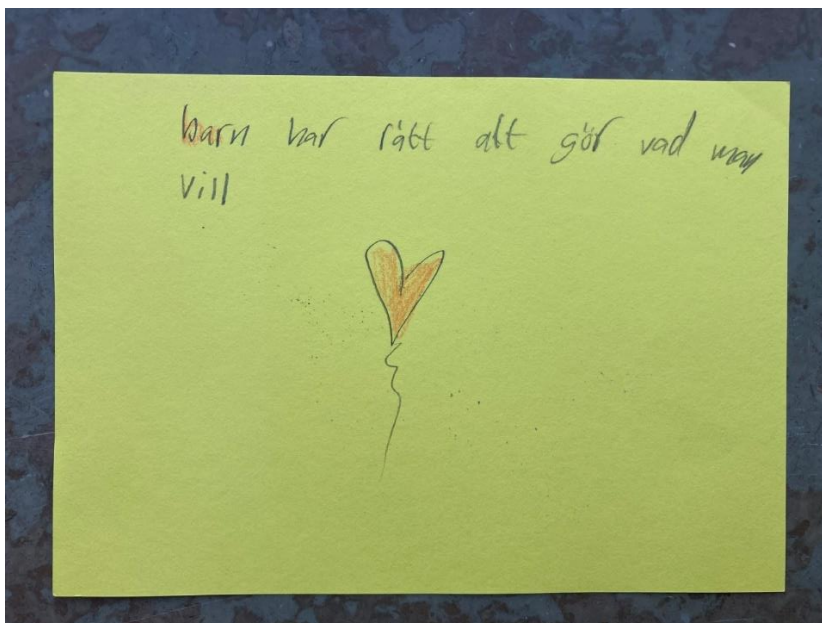 barn har rätt att gör vad man
vill